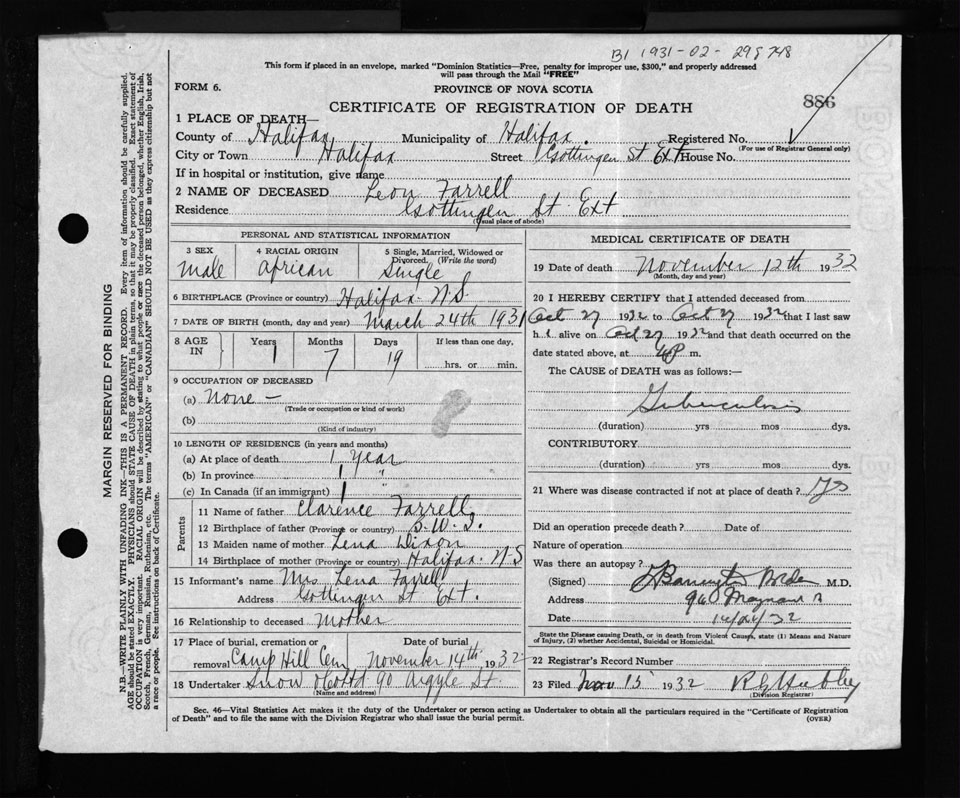 B1 1931-02-298748
This form if placed in an envelope, marked "Dominion Statistics—Free, penalty for improper use, $300," and properly addressed
will pass through the Mail "FREE"
FORM 6.
PROVINCE OF NOVA SCOTIA
886
CERTIFICATE OF REGISTRATION OF DEATH
1 PLACE OF DEATH—
County of Halifax Municipality of Halifax Registered No.
(For use of Registrar General only)
City or Town Halifax Street Gottingen St Ext House No.
If in hospital or institution, give name
2 NAME OF DECEASED Leon Farrell
Residence Gottingen St Ext
(Usual place of abode)
PERSONAL AND STATISTICAL INFORMATION
3 SEX 4 RACIAL ORIGIN 5 Single, Married, Widowed or
Divorced. (Write the word)
male african single
6 BIRTHPLACE (Province or country) Halifax N.S.
7 DATE OF BIRTH (month, day and year) March 24th 1931
8 AGE IN Years Months Days If less than one day,
1 7 19 hrs. or min.
9 OCCUPATION OF DECEASED
(a) None —
(Trade or occupation or kind of work)
(b)
(Kind of industry)
10 LENGTH OF RESIDENCE (in years and months)
(a) At place of death 1 Year
(b) In province 1 "
(c) In Canada (if an immigrant) 1
Parents
11 Name of father Clarence Farrell
12 Birthplace of father (Province or country) B.W.I.
13 Maiden name of mother Lena Dixon
14 Birthplace of mother (Province or country) Halifax N.S
15 Informant's name Mrs Lena Farrell
Address Gottingen St Ext.
16 Relationship to deceased Mother
17 Place of burial, cremation or Date of burial
removal Camp Hill Cem November 14th 1932
18 Undertaker Snow & Co Ltd 90 Argyle St.
(Name and address)
MEDICAL CERTIFICATE OF DEATH
19 Date of death November 12th 1932
(Month, day and year)
20 I HEREBY CERTIFY that I attended deceased from
Oct 27 1932 to Oct 27 1932 that I last saw
h alive on Oct 27 1932 and that death occurred on the
date stated above, at 4 P m.
The CAUSE of DEATH was as follows:—
Tuberculosis
(duration) yrs mos dys.
CONTRIBUTORY
(duration) yrs mos dys.
21 Where was disease contracted if not at place of death? Yes
Did an operation precede death? Date of
Nature of operation
Was there an autopsy?
(Signed) M.D.
Address Maynard
Date 14/11/32
State the Disease causing Death, or in death from Violent Causes, state (1) Means and Nature
of Injury, (2) whether Accidental, Suicidal or Homicidal.
22 Registrar's Record Number
23 Filed Nov 15 1932
(Division Registrar)
Sec. 46—Vital Statistics Act makes it the duty of the Undertaker or person acting as Undertaker to obtain all the particulars required in the "Certificate of Registration
of Death" and to file the same with the Division Registrar who shall issue the burial permit.
(OVER)
MARGIN RESERVED FOR BINDING
N.B.—WRITE PLAINLY WITH UNFADING INK—THIS IS A PERMANENT RECORD. Every item of information should be carefully supplied.
AGE should be stated EXACTLY. PHYSICIANS should STATE CAUSE OF DEATH in plain terms, so that it may be properly classified. Exact statement of
OCCUPATION is very important. RACIAL ORIGIN will be described by stating to what people or race the deceased person belonged, whether English, Irish,
Scotch, French, German, Russian, Ruthenian, etc. The terms "AMERICAN" or "CANADIAN" SHOULD NOT BE USED as they express citizenship but not
a race or people. See instructions on back of Certificate.